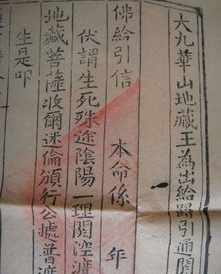 大九華山地藏王為出給路引通關
佛給引信 本命係 年
伏謂生死殊途陰陽一理關淫渡
地藏菩薩收爾迷倫頒行公據普渡
生是叩